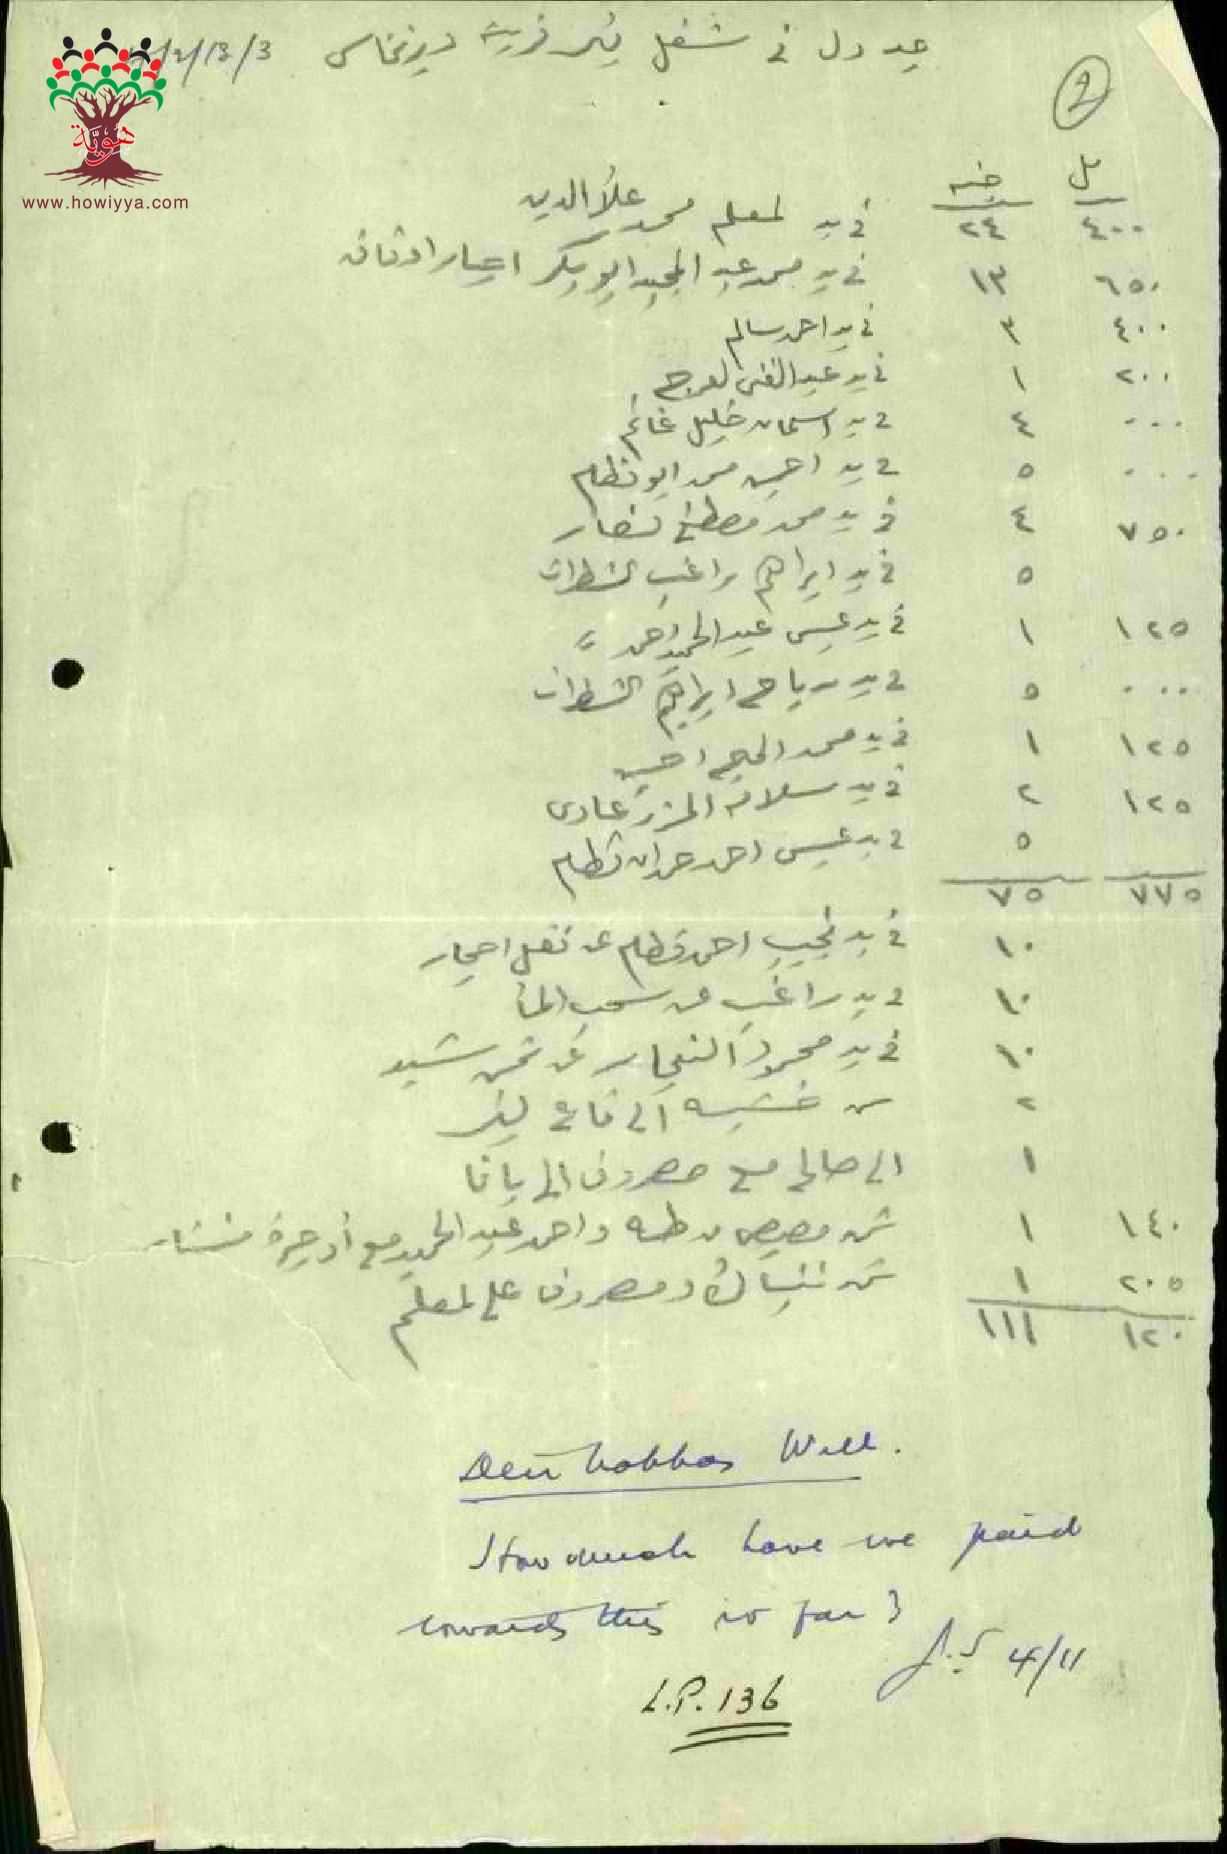 جدول في شغل بئر قرية ديرنخاس 4/2/13/3
2
هوية
www.howiyya.com
مل جنيه
٤٠٠ ٢٤ في يد المعلم محمد علاء الدين
٦٥٠ ١٣ في يد محمد عبد المجيد ابو بكر احجار
٤٠٠ ٣ في يد احمد سالم
٢٠٠ ١ في يد عبد الغني
٠٠٠ ٤ في يد خليل غانم
٠٠٠ ٥ في يد محمد ابو نظام
٧٥٠ ٤ في يد محمد مصطفى نصار
٥ في يد ابراهيم راغب الشطرات
١٢٥ ١ في يد عيسى عبد الحميد احمد
٠٠٠ ٥ في يد رباح ابراهيم الشطرات
١٢٥ ١ في يد محمد
١٢٥ ٢ في يد سلامه
٥ في يد عيسى احمد حمدان
٧٧٥ ٧٥
١٠ في يد نجيب احمد عن نقل احجار
١٠ في يد راغب عن سحب الماء
١٠ في يد محمود النجار عن ثمن شيد
٢ خشبه الى قاع البئر
١ الى صالح مع مصروف الى يافا
١٤٠ ١ ثمن واحمد عبد الحميد مع اجرة
٢٠٥ ١ ثمن ومصروف على المعلم
١٢٠ ١١١
Deir Nakhas Well.
How much have we paid
towards this so far?
4/11
L.P. 136